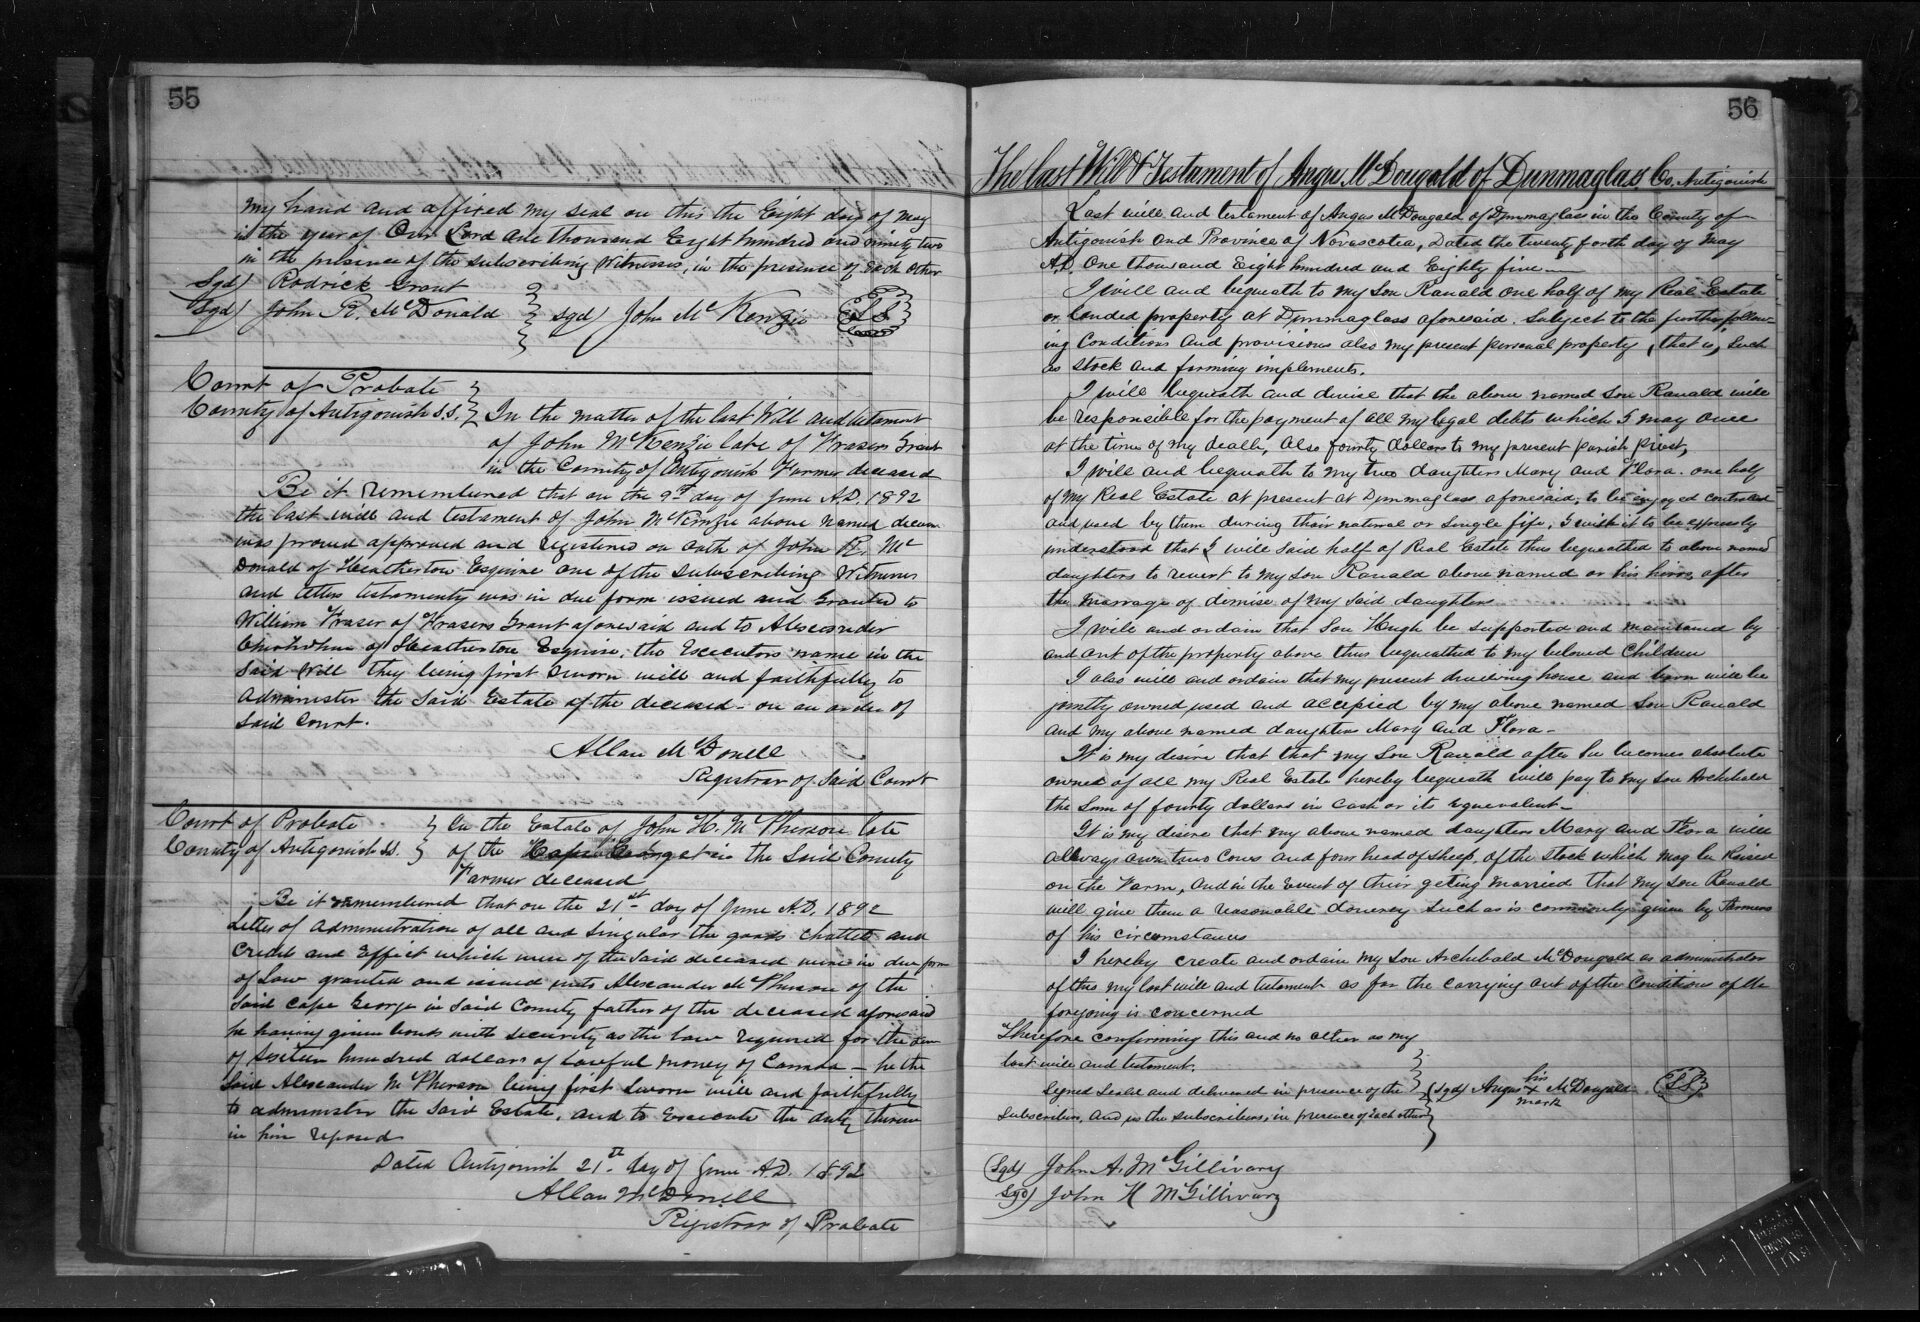 55
my hand and affixed my seal on this the Eight day of May
in the year of Our Lord one thousand Eight hundred and ninety two
in the presence of the subscribing Witnesses, in the presence of Each other
Sgd) Rodrick Grant
Sgd) John R. McDonald } Sgd) John McKenzie L S
Court of Probate
County of Antigonish S.S. } In the matter of the last Will and testament
of John McKenzie late of Frasers Grant
in the County of Antigonish Farmer deceased
Be it remembered that on the 9th day of June A.D. 1892
the last will and testament of John McKinzie above named deceased
was proved approved and registered on oath of John R. Mc
Donald of Heatherton Esquire one of the subscribing Witnesses
and letters testamenty was in due form issued and Granted to
William Fraser of Frasers Grant aforesaid and to Alexander
Chisholm of Heatherton Esquire, the Executors name in the
said Will they being first Sworn will and faithfully to
Administer the said Estate of the deceased on an order of
said Court.
Allan McDonell
Registrar of Said Court
Court of Probate
County of Antigonish S.S. } In the Estate of John H. McPherson late
of the Cape George in the Said County
Farmer deceased
Be it remembered that on the 21st day of June A.D. 1892
Letter of Administration of all and Singular the goods chattels and
Credit and Effect which were of the said deceased were in due form
of Law granted and issued unto Alexander McPherson of the
said Cape George in said County father of the deceased aforesaid
he having given bonds with security as the law required for the sum
of Sixteen hundred dollars of Lawful money of Canada – he the
said Alexander McPherson being first Sworn will and faithfully
to administer the said Estate, and to Execute the duty therein
in him reposed
Dated Antigonish 21st day of June A.D. 1892
Allan McDonell
Registrar of Probate
56
The last Will & Testament of Angus McDougald of Dunmaglass Co. Antigonish
Last will and testament of Angus McDougald of Dunmaglass in the County of
Antigonish and Province of Novascotia, Dated the twenty forth day of May
A.D. One thousand Eight hundred and Eighty five –
I will and bequeath to my Son Ranald one half of my Real Estate
or landed property at Dunmaglass aforesaid. Subject to the further follow-
ing Conditions and provisions also my present personal property, that is, Such
as stock and farming implements.
I will bequeath and devise that the above named Son Ranald will
be responsible for the payment of all my legal debts which I may owe
at the time of my death, Also fourty dollars to my present parish priest,
I will and bequeath to my two daughters Mary and Flora. one half
of my Real Estate at present at Dunmaglass aforesaid, to be enjoyed controled
and used by them during their natural or single life, I wish it to be expressly
understood that I will said half of Real Estate thus bequeathed to above named
daughters to revert to my son Ranald above named or his heirs, after
the marrage of demise of my said daughters
I will and ordain that Son Hugh be supported and maintained by
and out of the property above thus bequeathed to my beloved Children
I also will and ordain that my present dwelling house and barn will be
jointly owned used and accepied by my above named Son Ranald
and my above named daughters Mary and Flora –
It is my desire that that my Son Ranald after he becomes absolute
owner of all my Real Estate hereby bequeath will pay to my son Archibald
the Sum of fourty dollars in Cash or its Equevalent –
It is my desire that my above named daughters Mary and Flora will
allways own two Cows and four head of Sheep, of the stock which may be raised
on the Farm, and in the Event of their geting married that my son Ranald
will give them a reasonable dowrey Such as is commonly given by Farmers
of his circumstances
I hereby create and ordain my Son Archibald McDougald as administrator
of this my last will and testament as far the carrying out of the Conditions of the
foregoing is concerned
Therefore confirming this and no other as my
last will and testament.
Signed Seald and delivered in presence of the
Subscribers, and in the subscribers, in presence of Each other } (Sgd) Angus his x mark McDougald L S
(Sgd) John A. McGillivary
Sgd) John H McGillivary